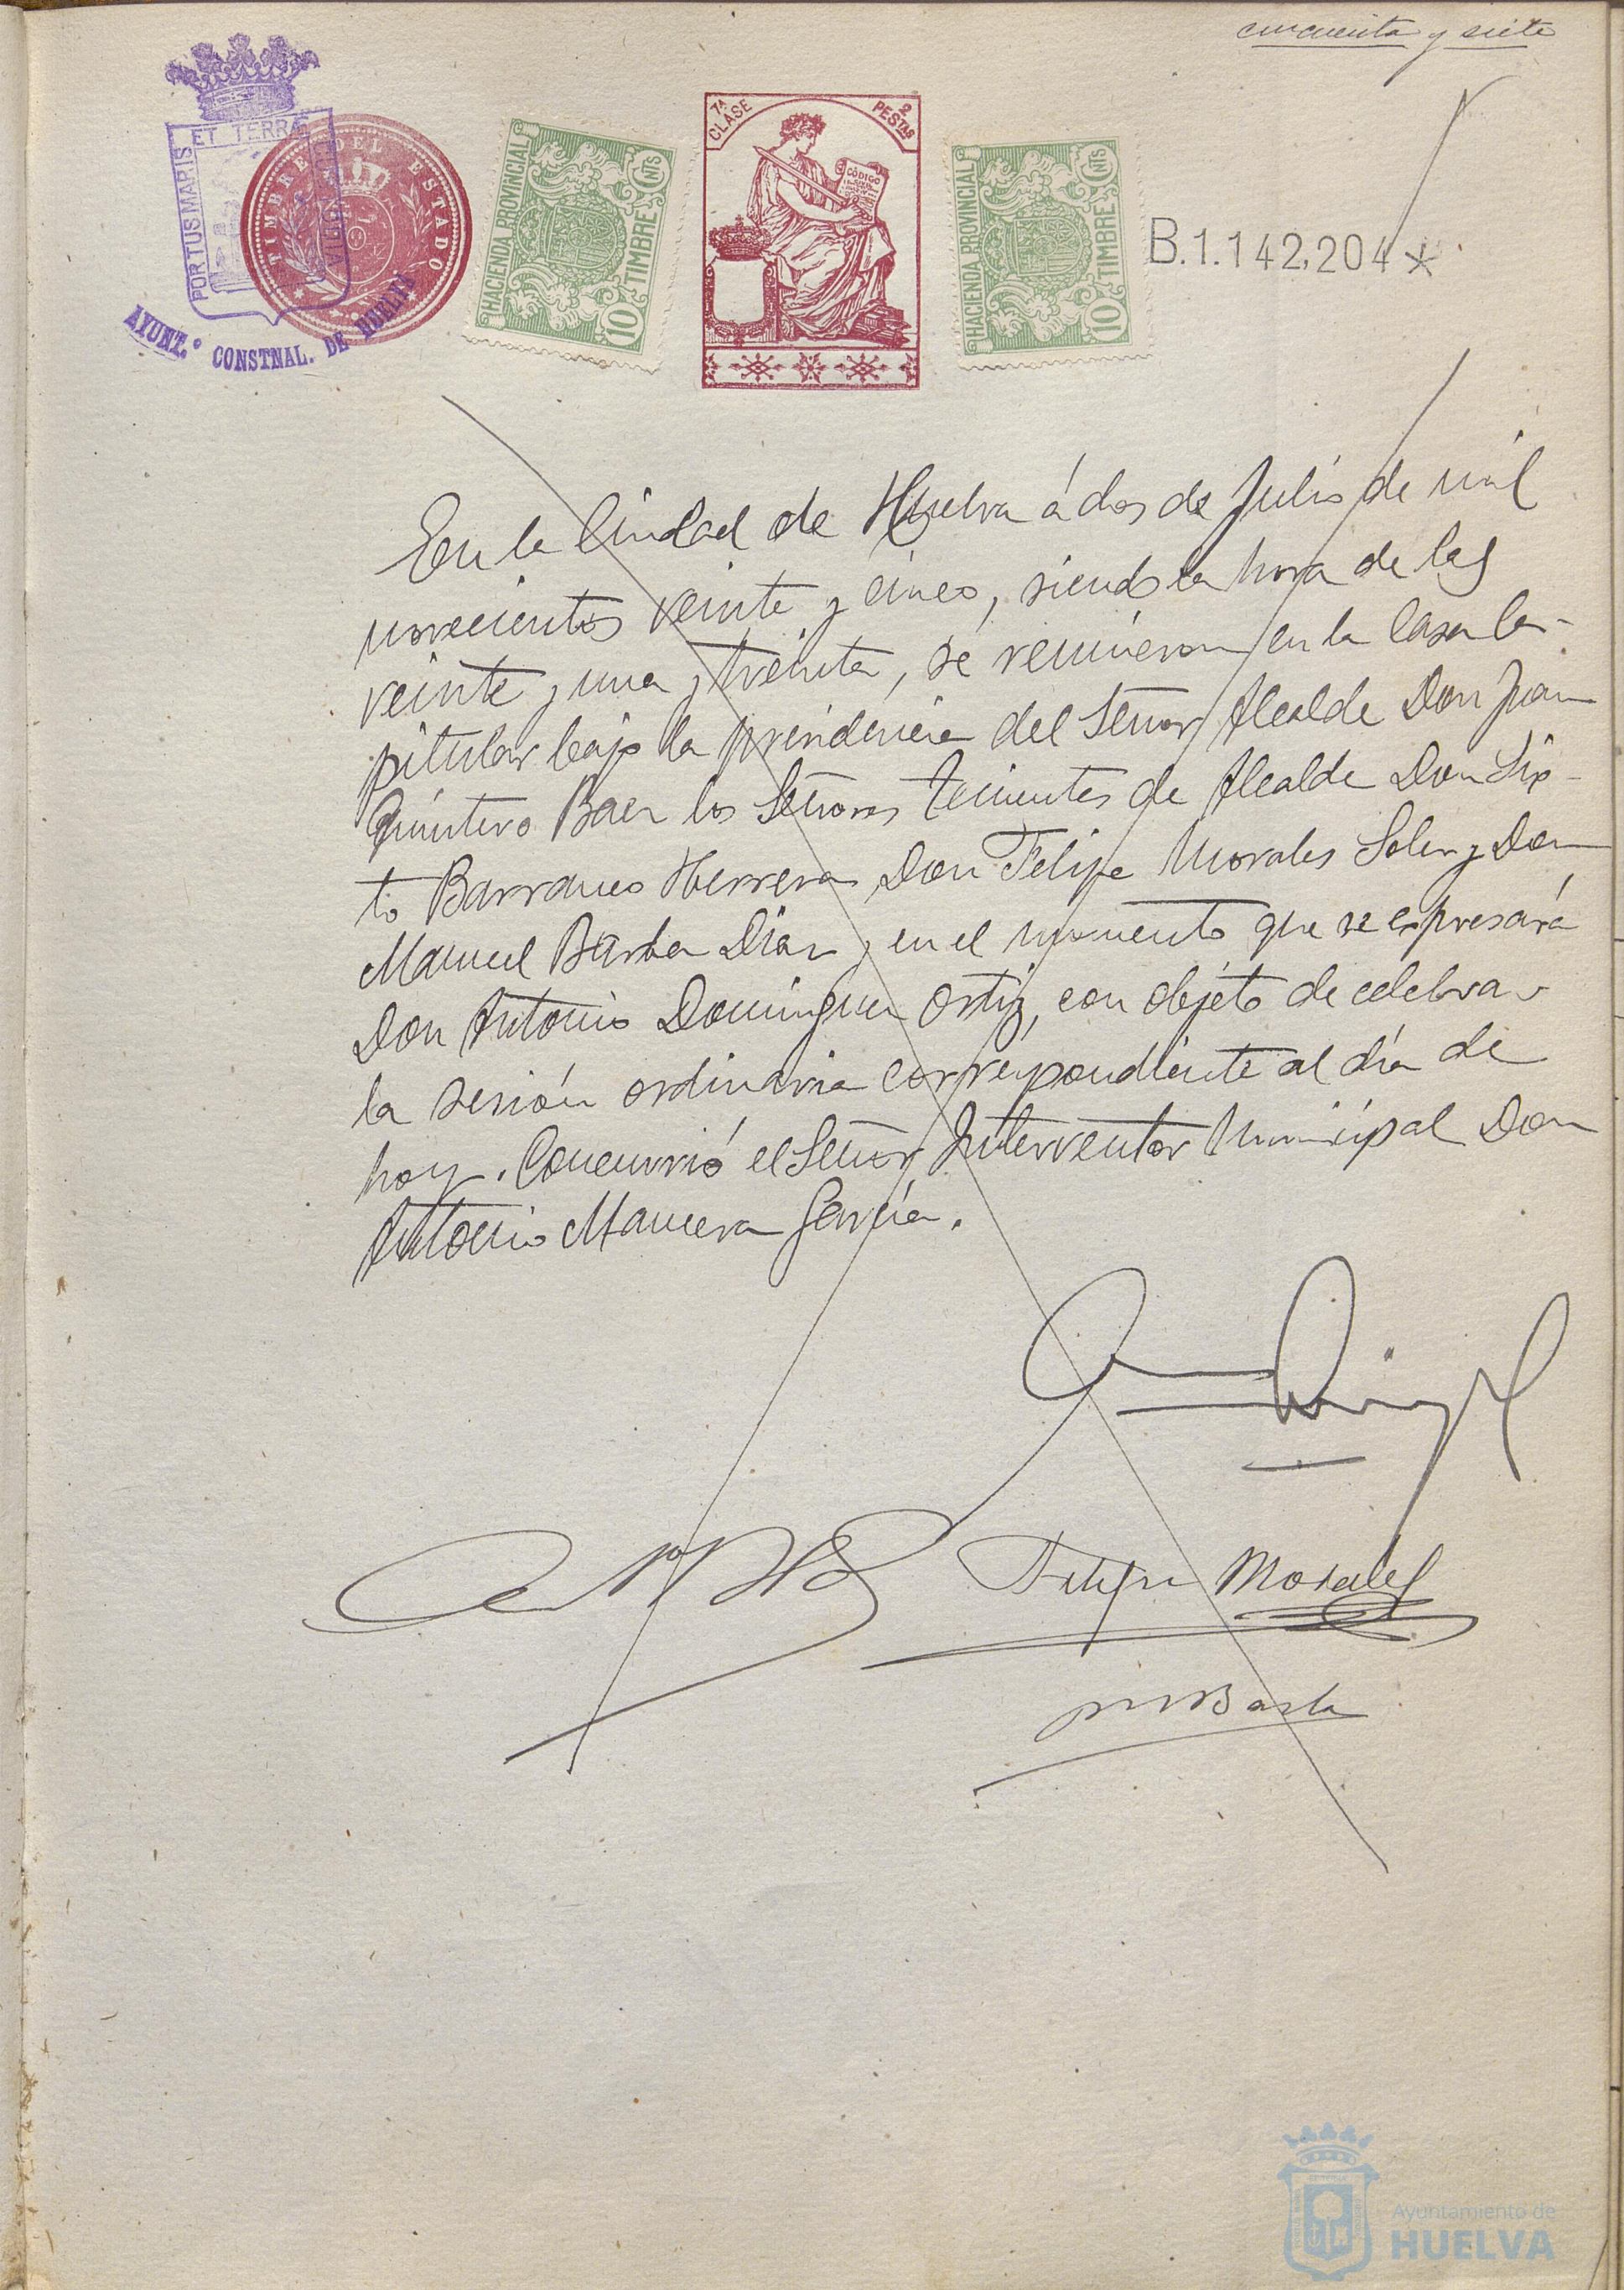 cincuenta y siete
ET TERRÆ
PORTUS MARIS
CUSTODIA
AYUNT.º CONSTNAL. DE HUELVA
TIMBRE DEL ESTADO
HACIENDA PROVINCIAL
10 TIMBRE CNTS
7ª CLASE
2 PESTAS
CÓDIGO
HACIENDA PROVINCIAL
10 TIMBRE CNTS
B.1.142,204*
En la Ciudad de Huelva á dos de Julio de mil
novecientos veinte y cinco, siendo la hora de las
veinte y una y treinta, se reunieron en la Casa Ca-
pitular bajo la presidencia del Señor Alcalde Don Juan
Quintero Baez los Señores Tenientes de Alcalde Don Six-
to Barranco Herrera Don Felipe Morales Soler y Don
Manuel Barba Díaz y en el momento que se expresará
Don Antonio Dominguez Ortiz, con objeto de celebrar
la sesión ordinaria correspondiente al día de
hoy. Concurrió el Señor Interventor Municipal Don
Antonio Mancera García.
Felipe Morales
M Barba
Ayuntamiento de
HUELVA